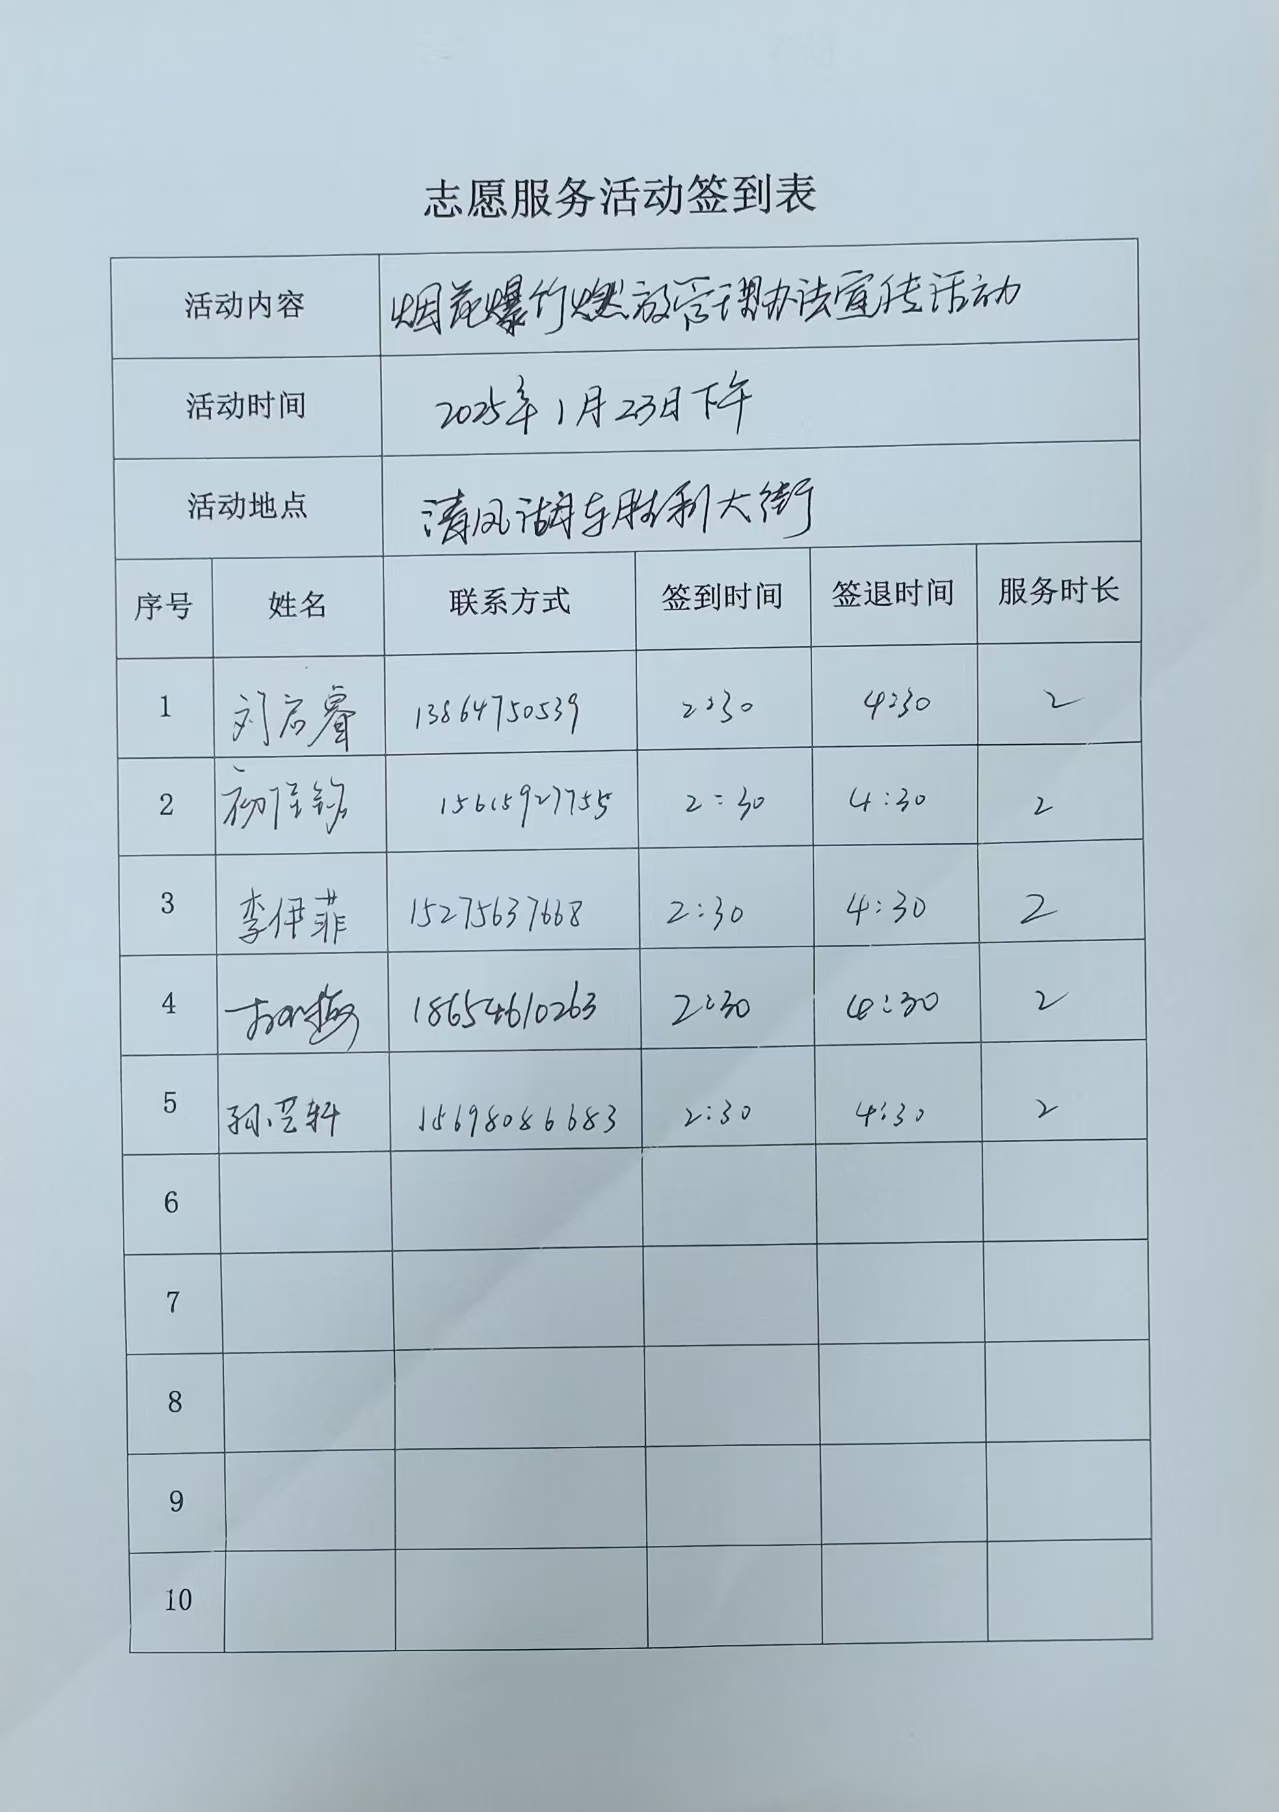 志愿服务活动签到表
活动内容 烟花爆竹燃放管理办法宣传活动
活动时间 2025年1月23日下午
活动地点 清风湖东胜利大街
序号 姓名 联系方式 签到时间 签退时间 服务时长
1 刘启睿 13864750539 2:30 4:30 2
2 初 铭 15615927755 2:30 4:30 2
3 李伊菲 15275637668 2:30 4:30 2
4 18654610263 2:30 4:30 2
5 孙芸轩 15698086683 2:30 4:30 2
6
7
8
9
10